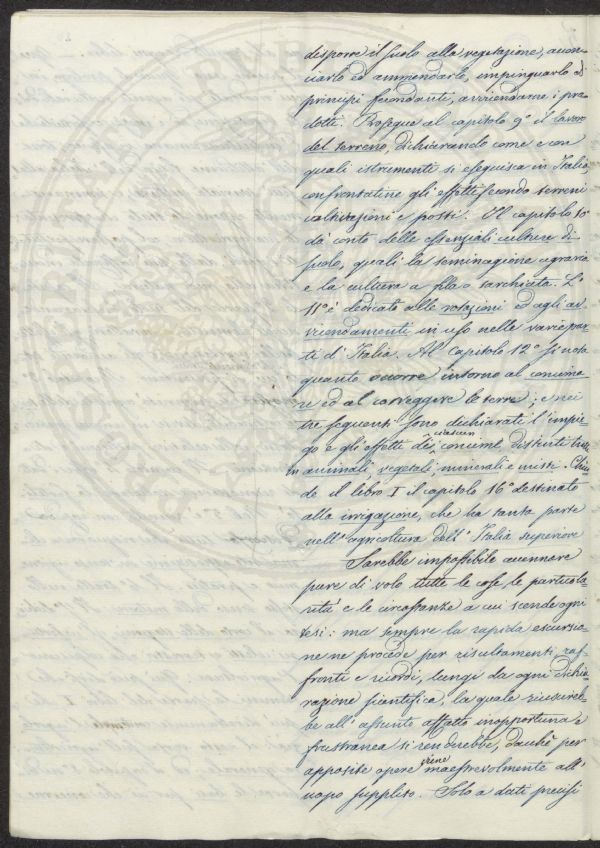 disporre il suolo alla vegetazione, accon-
ciarlo ed ammendarlo, impinguarlo di
principj fecondanti, avvicendarne i pro-
dotti. Prosegue al capitolo 9º il lavoro
del terreno, dichiarando come e con
quali istrumenti si eseguisca in Italia,
confrontatine gli effetti secondo terreni
coltivazioni e posti. Il capitolo 10
dà conto delle essenziali culture di
suolo, quali la seminagione agraria
e la cultura a fila o sarchiata. L'
11º è dedicato alle rotazioni ed agli av-
vicendamenti in uso nelle varie par-
ti d'Italia. Al capitolo 12º si nota
quanto occorre intorno al concima-
re ed al correggere le terre; e nei
tre seguenti sono dichiarati l'impie-
go e gli effetti di ciascun concime distinti
in animali, vegetali, minerali e misti. Chiu-
de il libro I il capitolo 16º destinato
alla irrigazione, che ha tanta parte
nell'agricoltura dell'Italia superiore
Sarebbe impossibile accennare
pure di volo tutte le cose, le particola-
rità e le circostanze a cui scende ogni
tesi: ma sempre la rapida escursio-
ne ne procede per risultamenti, raf-
fronti e ricordi, lungi da ogni dichia-
razione scientifica, la quale riuscireb-
be all'assente affatto inopportuna e
frustranea si renderebbe, dacchè per
apposite opere viene maestrevolmente all'
uopo supplito. Solo a dati precisi